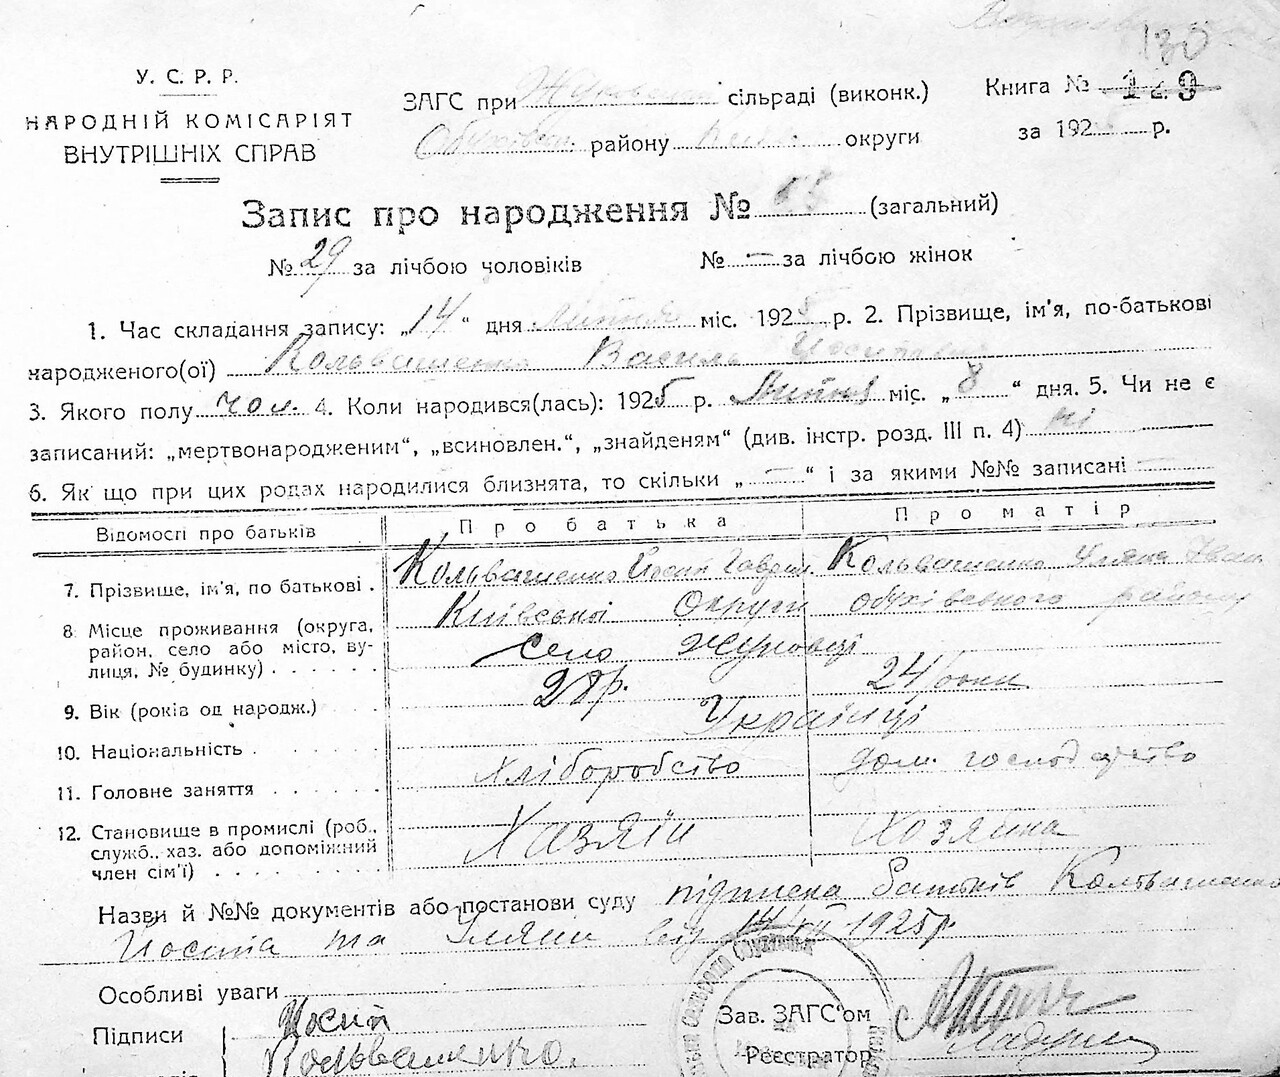 130
У. С. Р. Р.
НАРОДНІЙ КОМІСАРІЯТ
ВНУТРІШНІХ СПРАВ
ЗАГС при сільраді (виконк.)
Обухівськ. району округи
Книга № 129
за 1925 р.
Запис про народження № (загальний)
№ 29 за лічбою чоловіків № — за лічбою жінок
1. Час складання запису: „14“ дня Липня міс. 1925 р. 2. Прізвище, ім'я, по-батькові
народженого(ої) Кольвашенко Василь Йосипович
3. Якого полу чол. 4. Коли народився(лась): 1925 р. Липня міс. „8“ дня. 5. Чи не є
записаний: „мертвонародженим“, „всиновлен.“, „знайденям“ (див. інстр. розд. III п. 4) ні
6. Як що при цих родах народилися близнята, то скільки „—“ і за якими №№ записані —
Відомості про батьків Про батька Про матір
7. Прізвище, ім'я, по батькові . Кольвашенко Йосип Гаврил. Кольвашенко Уляна Іван.
8 Місце проживання (округа, Київської Округи обухівського району
район, село або місто, ву- село Жуковці
лиця, № будинку) . . . . . .
9. Вік (років од народж.) 28 р. 24 роки
10. Національність . Українці
11. Головне заняття хліборобство дом. господарство
12. Становище в промислі (роб., Хазяїн Хозяйка
служб., хаз. або допоміжний
член сім'ї) . . . . . . . .
Назви й №№ документів або постанови суду підписка батьків Кольвашенко
Йосипа та Уляни від 14/VII 1925 р.
Особливі уваги
Підписи Йосип
Кольвашенко.
Зав. ЗАГС'ом
Реєстратор